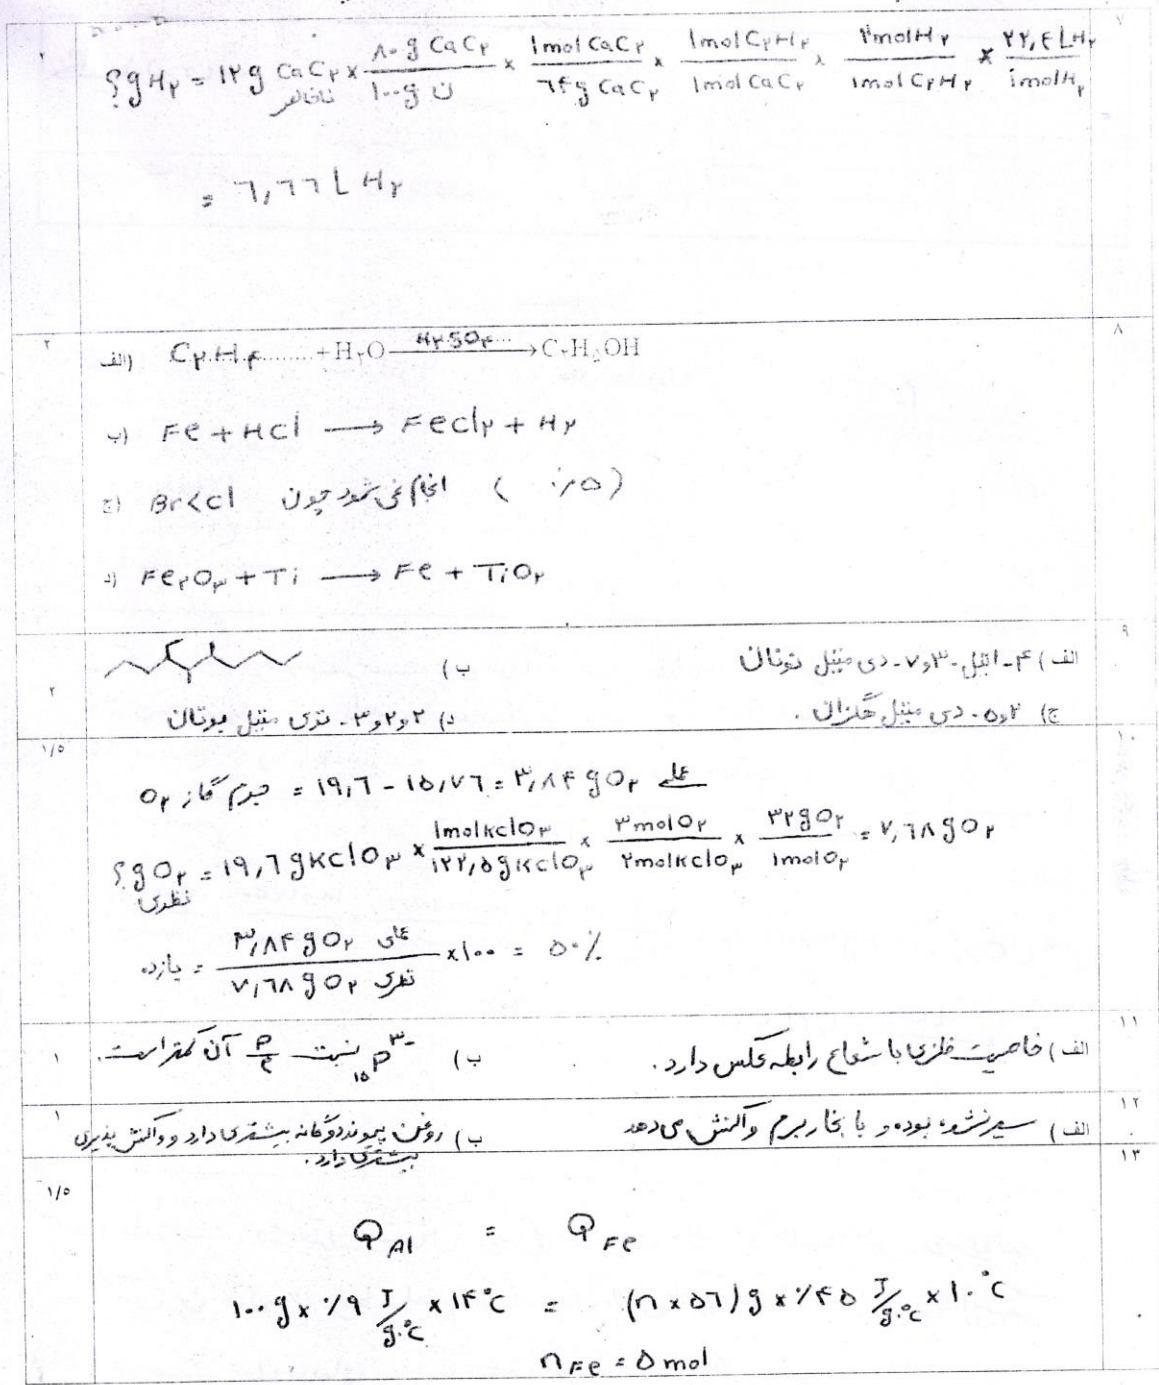 ۷
۲
؟gH۲ = ۱۲g CaC۲ ناخالص × ۸۰g CaC۲ / ۱۰۰g ن × ۱mol CaC۲ / ۶۴g CaC۲ × ۱mol C۲H۲ / ۱mol CaC۲ × ۲molH۲ / ۱mol C۲H۲ × ۲۲,۴ LH۲ / ۱molH۲
= ۶,۶۶ L H۲
۸
۲
الف) C۲H۴ ......... +H۲O —H۲SO۴→ C۲H۵OH
ب) Fe + HCl → FeCl۲ + H۲
ج) Br<Cl انجام نمی شود چون ( ۰/۵)
د) Fe۲O۳ + Ti → Fe + TiO۲
۹
۲
الف) ۴- اتیل - ۳و۷- دی متیل نونان
ب)
ج) ۲و۵- دی متیل هگزان .
د) ۲و۲و۳- تری متیل بوتان
۱۰
۱/۵
جرم گاز O۲ = ۱۹,۶ - ۱۵,۷۶ = ۳,۸۴ gO۲ عملی
؟gO۲ نظری = ۱۹,۶ gKClO۳ × ۱molKClO۳ / ۱۲۲,۵gKClO۳ × ۳molO۲ / ۲molKClO۳ × ۳۲gO۲ / ۱molO۲ = ۷,۶۸ gO۲
بازده = ۳,۸۴ gO۲ عملی / ۷,۶۸ gO۲ نظری ×۱۰۰ = ۵۰٪
۱۱
۱
الف) خاصیت فلزی با شعاع رابطه عکس دارد .
ب) ۱۵P۳- نسبت p/e آن کمتر است .
۱۲
۱
الف) سیرنشده بوده و با بخار برم واکنش می دهد
ب) روغن پیوند دوگانه بیشتری دارد و واکنش پذیری
بیشتری دارد .
۱۳
۱/۵
Q Al = Q Fe
۱۰۰g × ۰/۹ J/g.°C × ۱۴°C = (n × ۵۶)g × ۰/۴۵ J/g.°C × ۱۰°C
nFe = ۵ mol